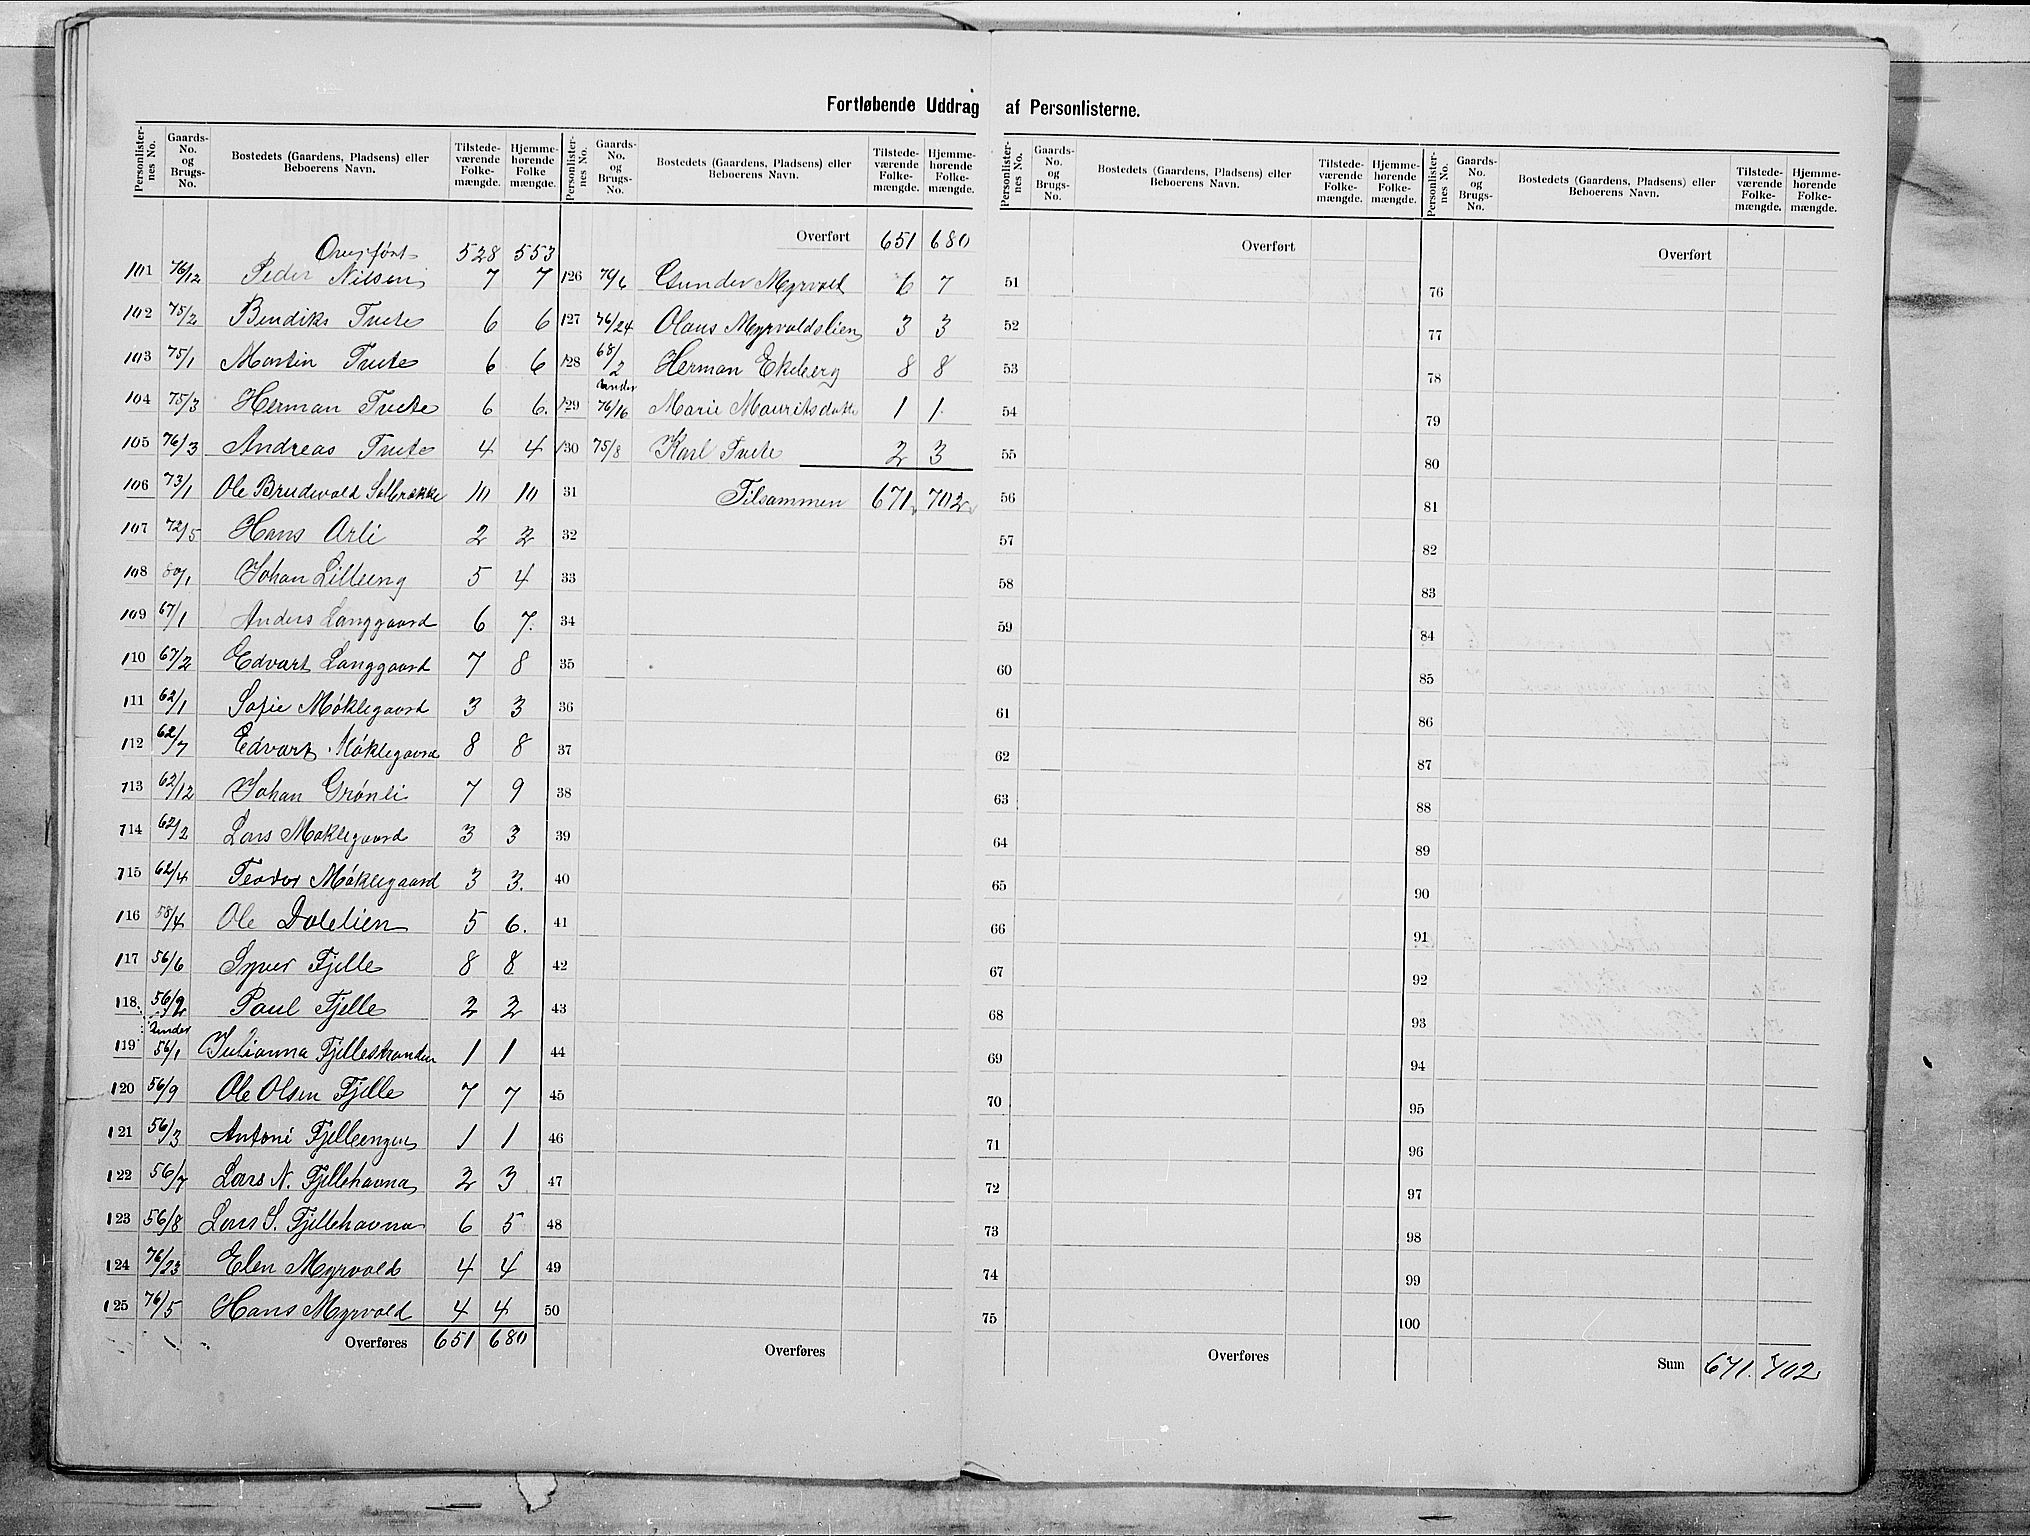 Fortløbende Uddrag af Personlisterne.
Personlister-nes No. | Gaards-No. og Brugs-No. | Bostedets (Gaardens, Pladsens) eller Beboerens Navn. | Tilstede-værende Folke-mængde. | Hjemme-hørende Folke mængde.
Overført 528 553
101 76/12 Peder Nilsen 7 7
102 75/2 Bendiks Tvete 6 6
103 75/1 Martin Tvete 6 6
104 75/3 Herman Tvete 6 6.
105 76/3 Andreas Tvete 4 4
106 73/1 Ole Brudevold Solbrække 10 10
107 72/5 Hans Arli 2 2
108 80/1 Johan Lilleeng 5 4
109 67/1 Anders Langgaard 6 7.
110 67/2 Edvart Langgaard 7 8
111 62/1 Sofie Møklegaard 3 3
112 62/7 Edvart Møklegaard 8 8
113 62/12 Johan Grønli 7 9
114 62/2 Lars Møklegaard 3 3
115 62/4 Teodor Møklegaard 3 3.
116 58/4 Ole Dalelien 5 6.
117 56/6 Syver Fjelle 8 8
118 56/2 Paul Fjelle 2 2
119 Under 56/1 Julianna Fjellestranden 1 1
120 56/9 Ole Olsen Fjelle 7 7
121 56/3 Antoni Fjelleengen 1 1
122 56/7 Lars N. Fjellehavna 2 3
123 56/8 Lars S. Fjellehavna 6 5
124 76/23 Elen Myrvold 4 4
125 76/5 Hans Myrvold 4 4
Overføres 651 680
Personlister-nes No. | Gaards-No. og Brugs-No. | Bostedets (Gaardens, Pladsens) eller Beboerens Navn. | Tilstede-værende Folke-mængde. | Hjemme-hørende Folke-mængde.
Overført 651 680
126 79/6 Gunder Myrvold 6 7
127 76/24 Olaus Myrvoldslien 3 3
128 68/2 Herman Ekeberg 8 8
129 Under 76/16 Marie Mauritsdatter 1 1.
130 75/8 Karl Tvete 2 3
31 Tilsammen 671 702
32
33
34
35
36
37
38
39
40
41
42
43
44
45
46
47
48
49
50
Overføres
Personlister-nes No. | Gaards-No. og Brugs-No. | Bostedets (Gaardens, Pladsens) eller Beboerens Navn. | Tilstede-værende Folke-mængde. | Hjemme-hørende Folke-mængde.
Overført
51
52
53
54
55
56
57
58
59
60
61
62
63
64
65
66
67
68
69
70
71
72
73
74
75
Overføres
Personlister-nes No. | Gaards-No. og Brugs-No. | Bostedets (Gaardens, Pladsens) eller Beboerens Navn. | Tilstede-værende Folke-mængde. | Hjemme-hørende Folke-mængde.
Overført
76
77
78
79
80
81
82
83
84
85
86
87
88
89
90
91
92
93
94
95
96
97
98
99
100
Sum 671. 702